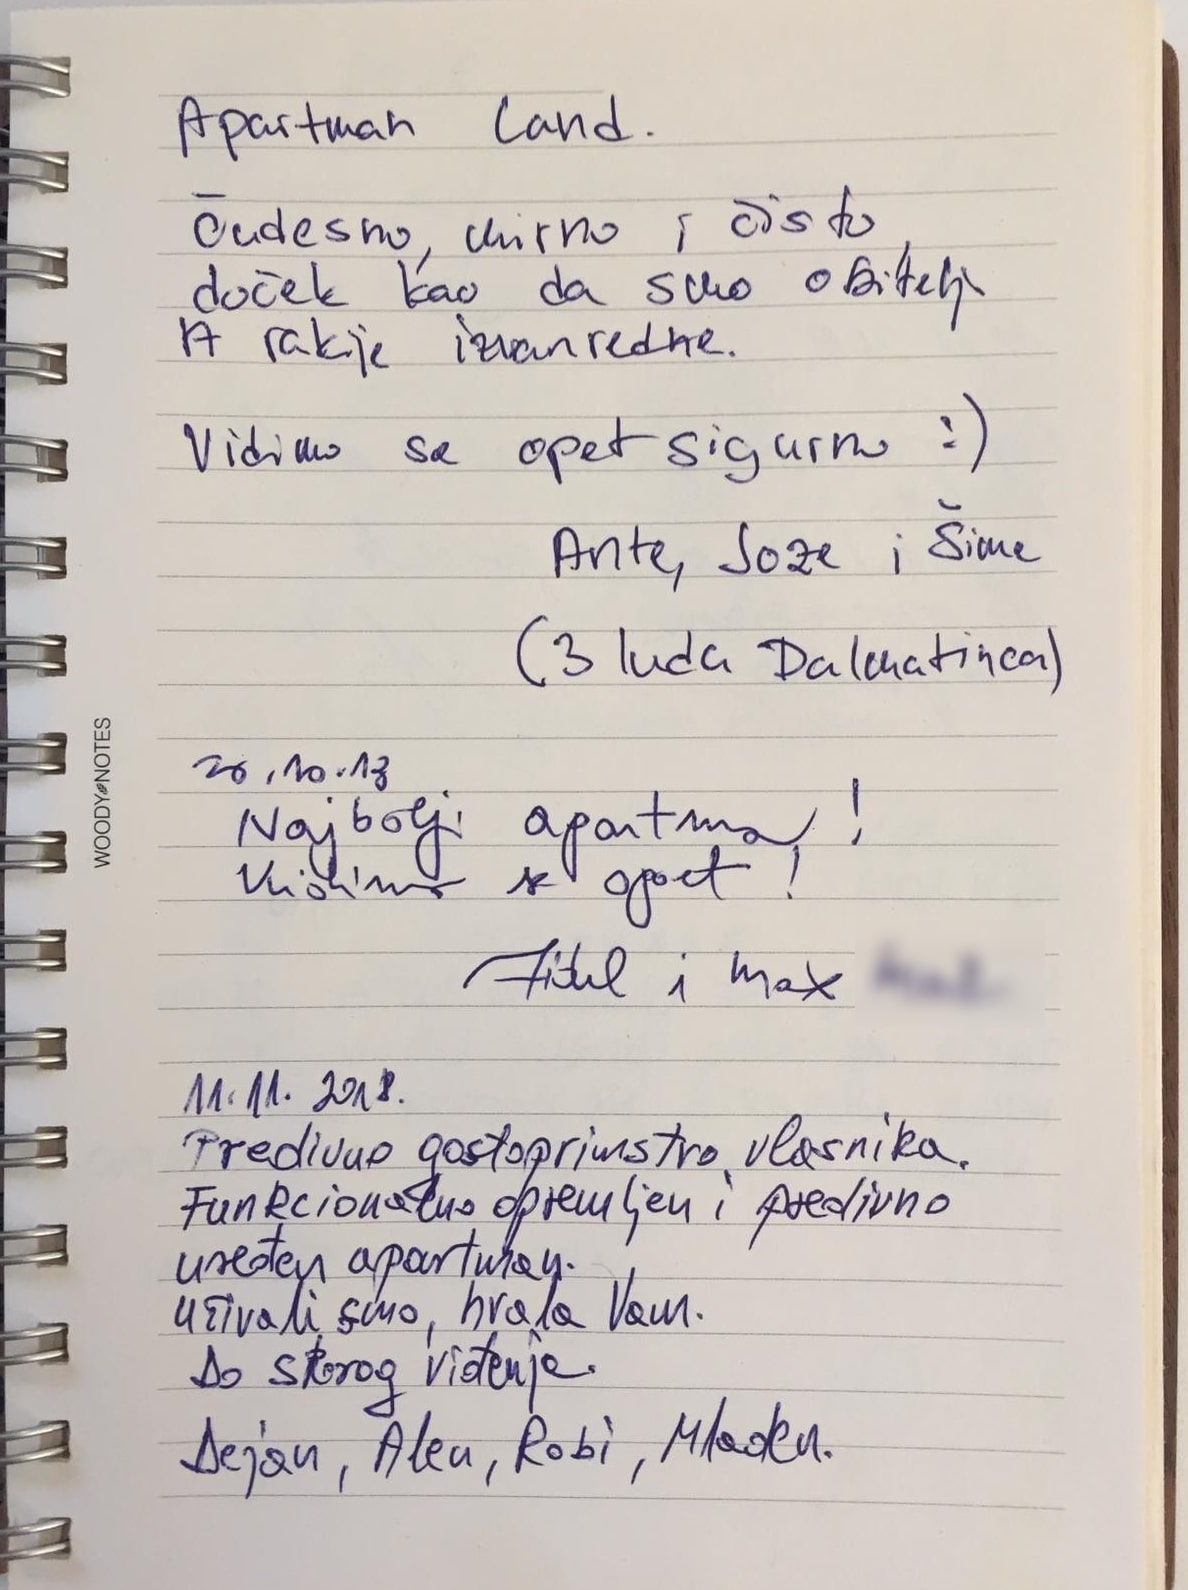 Apartman Land.
Čudesno, mirno i čisto,
doček kao da smo obitelj
A rakije izvanredne.
Vidimo se opet sigurno :)
Ante, Joze i Šime
(3 luda Dalmatinca)
WOODY NOTES
Najbolji apartma!
Vidimo se opet!
i Max
11.11. 2018.
Predivno gostoprimstvo vlasnika.
Funkcionalno opremljen i predivno
uređen apartman.
Uživali smo, hvala Vam.
Do skorog viđenja.
Dejan, Alen, Robi, Mladen.